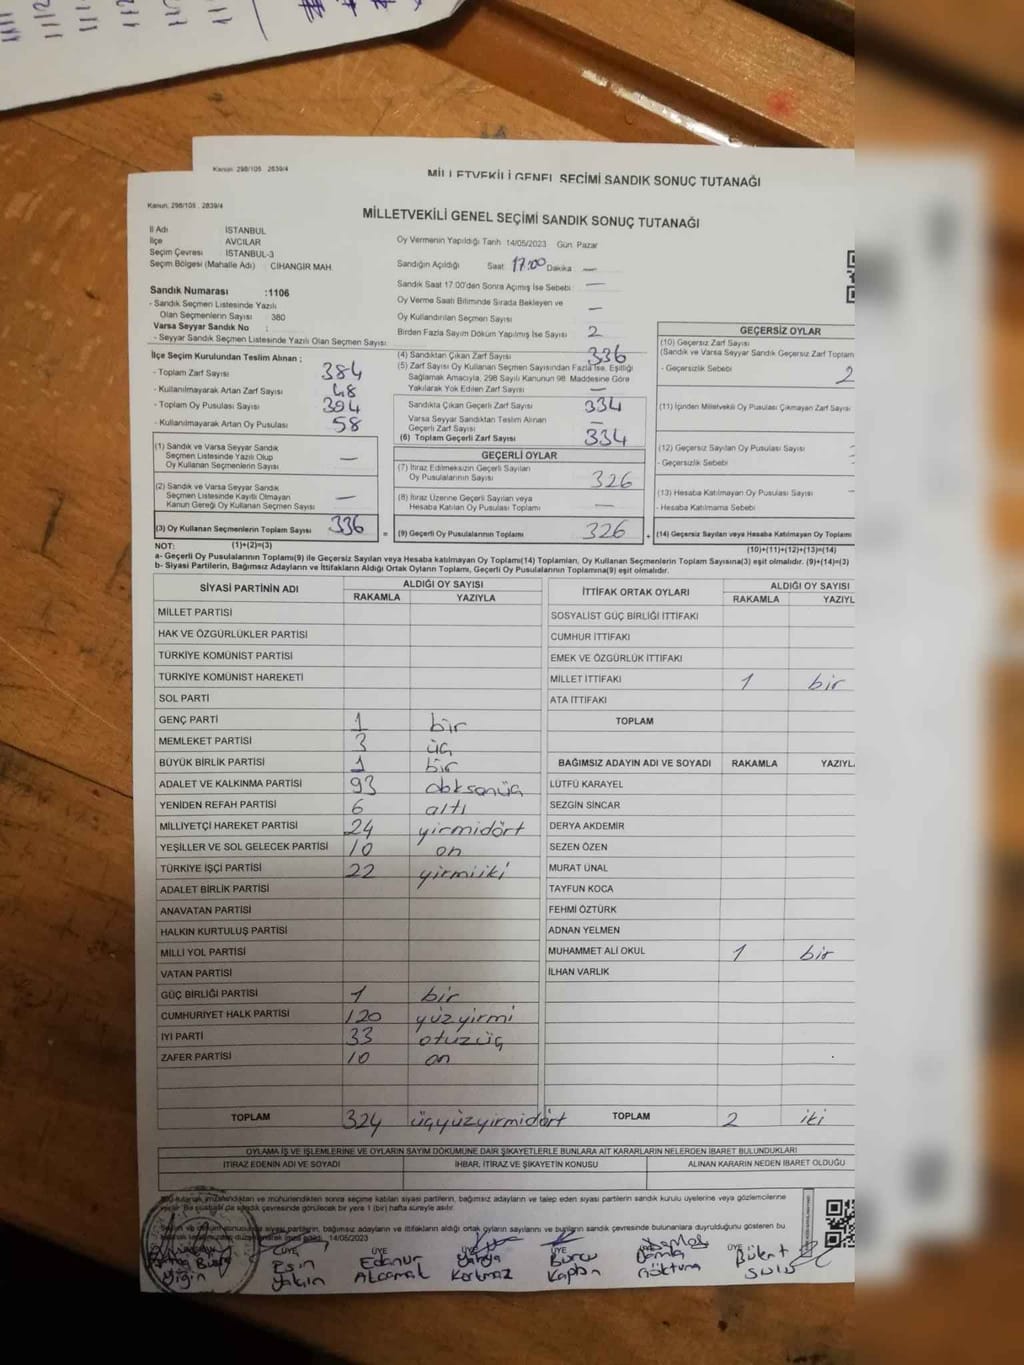 Kanun. 298/105 , 2839/4
MİLLETVEKİLİ GENEL SEÇİMİ SANDIK SONUÇ TUTANAĞI
Kanun. 298/105 , 2839/4
MİLLETVEKİLİ GENEL SEÇİMİ SANDIK SONUÇ TUTANAĞI
İl Adı İSTANBUL
İlçe AVCILAR
Seçim Çevresi İSTANBUL-3
Seçim Bölgesi (Mahalle Adı) : CİHANGİR MAH.
Oy Vermenin Yapıldığı Tarih 14/05/2023 Gün Pazar
Sandığın Açıldığı Saat 17:00 Dakika —
Sandık Saat 17.00'den Sonra Açımış İse Sebebi —
Oy Verme Saati Bitiminde Sırada Bekleyen ve
Oy Kullandırılan Seçmen Sayısı —
Birden Fazla Sayım Döküm Yapılmış İse Sayısı 2
Sandık Numarası :1106
- Sandık Seçmen Listesinde Yazılı
Olan Seçmenlerin Sayısı 380
Varsa Seyyar Sandık No :
- Seyyar Sandık Seçmen Listesinde Yazılı Olan Seçmen Sayısı:
İlçe Seçim Kurulundan Teslim Alınan ;
- Toplam Zarf Sayısı 384
- Kullanılmayarak Artan Zarf Sayısı 48
- Toplam Oy Pusulası Sayısı 394
- Kullanılmayarak Artan Oy Pusulası 58
(1) Sandık ve Varsa Seyyar Sandık
Seçmen Listesinde Yazılı Olup
Oy Kullanan Seçmenlerin Sayısı —
(2) Sandık ve Varsa Seyyar Sandık
Seçmen Listesinde Kayıtlı Olmayan
Kanun Gereği Oy Kullanan Seçmen Sayısı —
(3) Oy Kullanan Seçmenlerin Toplam Sayısı 336 =
(4) Sandıktan Çıkan Zarf Sayısı 336
(5) Zarf Sayısı Oy Kullanan Seçmen Sayısından Fazla İse, Eşitliği
Sağlamak Amacıyla, 298 Sayılı Kanunun 98. Maddesine Göre
Yakılarak Yok Edilen Zarf Sayısı —
Sandıkta Çıkan Geçerli Zarf Sayısı 334
Varsa Seyyar Sandıktan Teslim Alınan
Geçerli Zarf Sayısı —
(6) Toplam Geçerli Zarf Sayısı 334
GEÇERLİ OYLAR
(7) İtiraz Edilmeksizin Geçerli Sayılan
Oy Pusulalarının Sayısı 326
(8) İtiraz Üzerine Geçerli Sayılan veya
Hesaba Katılan Oy Pusulası Toplamı —
(9) Geçerli Oy Pusulalarının Toplamı 326 +
GEÇERSİZ OYLAR
(10) Geçersiz Zarf Sayısı
(Sandık ve Varsa Seyyar Sandık Geçersiz Zarf Toplam
- Geçersizlik Sebebi 2
(11) İçinden Milletvekili Oy Pusulası Çıkmayan Zarf Sayısı
(12) Geçersiz Sayılan Oy Pusulası Sayısı
- Geçersizlik Sebebi
(13) Hesaba Katılmayan Oy Pusulası Sayısı
- Hesaba Katılmama Sebebi
(14) Geçersiz Sayılan veya Hesaba Katılmayan Oy Toplamı
NOT: (1)+(2)=(3) (10)+(11)+(12)+(13)=(14)
a- Geçerli Oy Pusulalarının Toplamı(9) ile Geçersiz Sayılan veya Hesaba katılmayan Oy Toplamı(14) Toplamları, Oy Kullanan Seçmenlerin Toplam Sayısına(3) eşit olmalıdır. (9)+(14)=(3)
b- Siyasi Partilerin, Bağımsız Adayların ve İttifakların Aldığı Ortak Oyların Toplamı, Geçerli Oy Pusulalarının Toplamına(9) eşit olmalıdır.
SİYASİ PARTİNİN ADI ALDIĞI OY SAYISI
RAKAMLA YAZIYLA
MİLLET PARTİSİ
HAK VE ÖZGÜRLÜKLER PARTİSİ
TÜRKİYE KOMÜNİST PARTİSİ
TÜRKİYE KOMÜNİST HAREKETİ
SOL PARTİ
GENÇ PARTİ 1 bir
MEMLEKET PARTİSİ 3 üç
BÜYÜK BİRLİK PARTİSİ 1 bir
ADALET VE KALKINMA PARTİSİ 93 doksanüç
YENİDEN REFAH PARTİSİ 6 altı
MİLLİYETÇİ HAREKET PARTİSİ 24 yirmidört
YEŞİLLER VE SOL GELECEK PARTİSİ 10 on
TÜRKİYE İŞÇİ PARTİSİ 22 yirmiiki
ADALET BİRLİK PARTİSİ
ANAVATAN PARTİSİ
HALKIN KURTULUŞ PARTİSİ
MİLLİ YOL PARTİSİ
VATAN PARTİSİ
GÜÇ BİRLİĞİ PARTİSİ 1 bir
CUMHURİYET HALK PARTİSİ 120 yüzyirmi
İYİ PARTİ 33 otuzüç
ZAFER PARTİSİ 10 on
TOPLAM 324 üçyüzyirmidört
İTTİFAK ORTAK OYLARI ALDIĞI OY SAYISI
RAKAMLA YAZIYL
SOSYALİST GÜÇ BİRLİĞİ İTTİFAKI
CUMHUR İTTİFAKI
EMEK VE ÖZGÜRLÜK İTTİFAKI
MİLLET İTTİFAKI 1 bir
ATA İTTİFAKI
TOPLAM
BAĞIMSIZ ADAYIN ADI VE SOYADI RAKAMLA YAZIYL
LÜTFÜ KARAYEL
SEZGİN SİNCAR
DERYA AKDEMİR
SEZEN ÖZEN
MURAT ÜNAL
TAYFUN KOCA
FEHMİ ÖZTÜRK
ADNAN YELMEN
MUHAMMET ALİ OKUL 1 bir
İLHAN VARLIK
TOPLAM 2 iki
OYLAMA İŞ VE İŞLEMLERİNE VE OYLARIN SAYIM DÖKÜMÜNE DAİR ŞİKAYETLERLE BUNLARA AİT KARARLARIN NELERDEN İBARET BULUNDUKLARI
İTİRAZ EDENİN ADI VE SOYADI İHBAR, İTİRAZ VE ŞİKAYETİN KONUSU ALINAN KARARIN NEDEN İBARET OLDUĞU
tutanak imzalandıktan ve mühürlendikten sonra seçime katılan siyasi partilerin, bağımsız adayların ve talep eden siyasi partilerin sandık kurulu üyelerine veya gözlemcilerine
sandık çevresinde görülecek bir yere 1 (bir) hafta süreyle asılır.
siyasi partilerin, bağımsız adayların ve ittifakların aldığı ortak oyların sayılarını ve bunların sandık çevresinde bulunanlara duyrulduğunu gösteren bu
14/05/2023
ÜYE ÜYE ÜYE ÜYE ÜYE
Yiğin
Esin Yalçın
Edanur
Yahya Korkmaz
Burcu Kaplan
Göktuna
Bülent